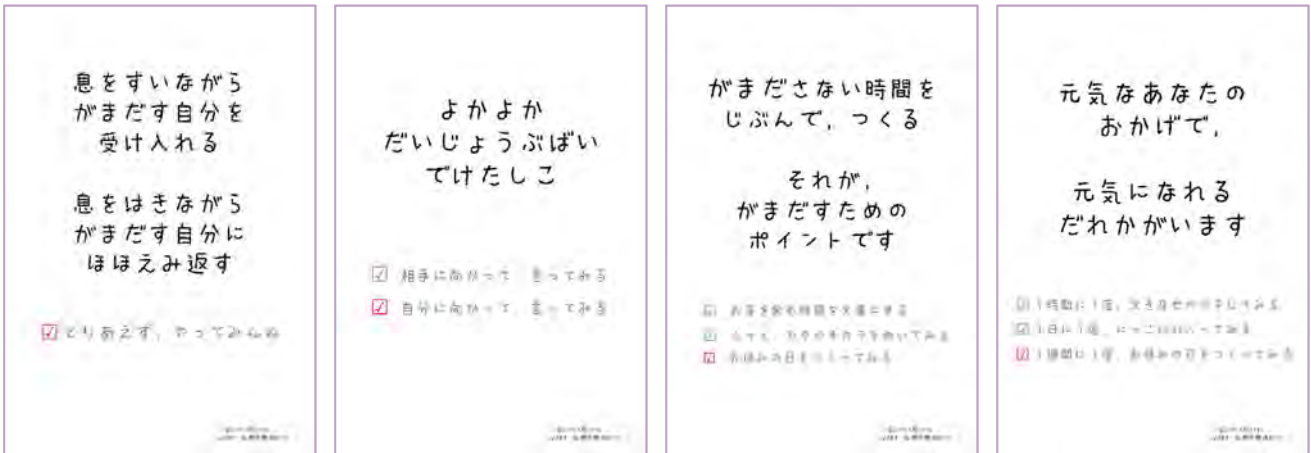 息をすいながら
がまだす自分を
受け入れる
息をはきながら
がまだす自分に
ほほえみ返す
とりあえず、やってみんね
よかよか
だいじょうぶばい
でけたしこ
相手に向かって、言ってみる
自分に向かって、言ってみる
がまださない時間を
じぶんで，つくる
それが，
がまだすための
ポイントです
お茶を飲む時間を大事にする
お休みの日をつくってみる
元気なあなたの
おかげで，
元気になれる
だれかがいます
1時間に1度，
1日に1度，にっこり
1週間に1度，お休みの日をつくってみる